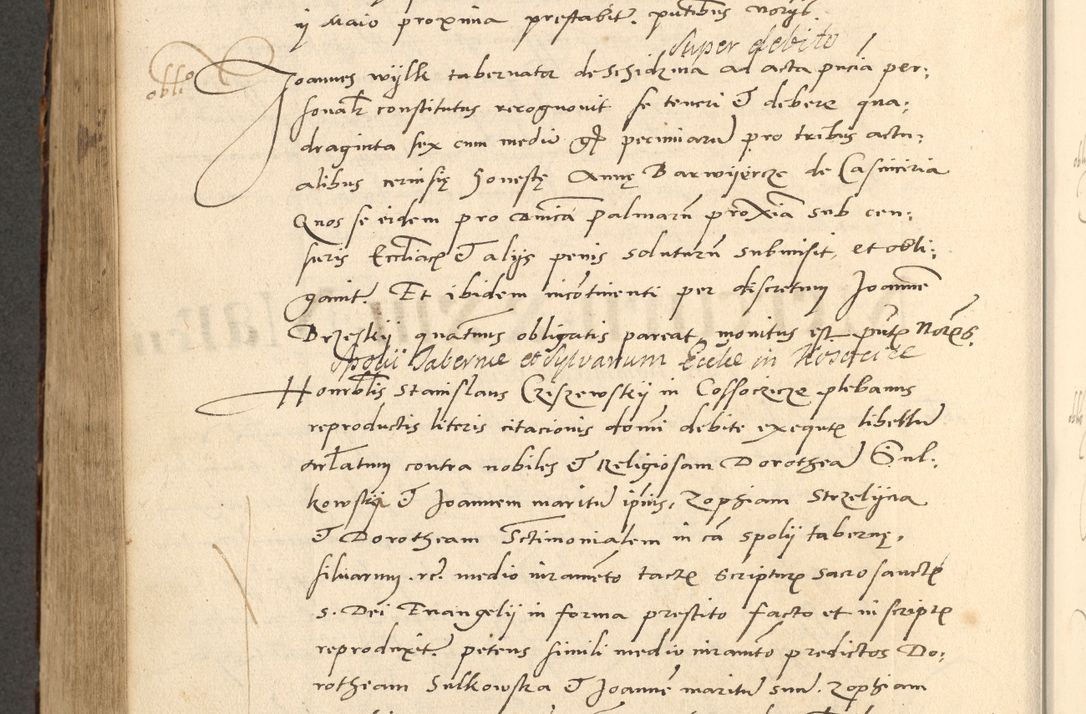 ij Maio proxima prestabit. putibus noryb.
Super debito /
oblłō
Joannes wylk tabernator de Schidzina ad acta pñcia per:
sonalr constitutus recognouit se teneri & debere qua:
draginta sex cum mediū gr pecuniarū pro tribus actu:
alibus cerinsię Honestę Annę Barwijerczę de Casiniria
Quos se eidem pro Dnicā palmarū proxīa sub cen:
suris Ecclīacę & alijs penis soluturū submisit, et obli:
gauit. Et ibidem incōtinenti per discretum Joannē
Brzeskij quatnus obligatis pareat monitus est pñte Nores.
Spolii Tabernæ et sylvarum Eccle in Kosocice
Honrblis Stanislaus Czeszewskij in Cossoczycze plebanus
reproductis literis citacionis domī debite exequtę libellū
arlatum contra nobiles & Religiosam Dorotheā Sul:
kowskij & Joannem maritū ipius, Zophiam Strzelijna
& Dorotheam Sctimonialem in cā spolij tabernę,
siluarum . rc. medio iurameto tactę scripturę sacrosanctę
s. Dei Euangelij in forma prestito facto et in scriptę
reproduxit. petens simili medio iuramto predictos Do:
rotheam Sulkowska & Joannē maritū suū. Zophiam